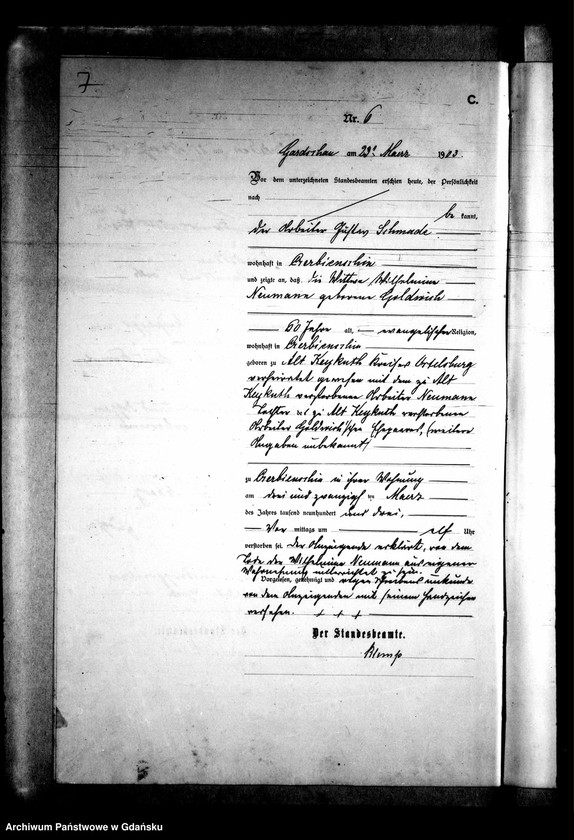 7
C.
Nr. 6
Gardschau am 23t Maerz 1903.
Vor dem unterzeichneten Standesbeamten erschien heute, der Persönlichkeit
nach
be kannt,
der Arbeiter Gustav Schmade
wohnhaft in Czerbienschin
und zeigte an, daß die Wittwe Wilhelmine
Neumann geborene Goldwich
60 Jahre alt, evangelischer Religion,
wohnhaft in Czerbienschin
geboren zu Alt Keykuth Kreises Ortelsburg
verheirathet gewesen mit dem zu Alt
Keykuth verstorbenen Arbeiter Neumann
Tochter der zu Alt Keykuth verstorbenen
Arbeiter Goldwich'schen Ehepaares, (weitere
Angaben unbekannt)
zu Czerbienschin in ihrer Wohnung
am drei und zwanzigsten des Maerz
des Jahres tausend neunhundert und drei,
Vor mittags um elf Uhr
verstorben sei. Der Anzeigende erklärt, von dem
Tode der Wilhelmine Neumann aus eigener
Wahrnehmung unterrichtet zu sein.
Vorgelesen, genehmigt und wegen Schreibensunkunde
von dem Anzeigenden mit seinem Handzeichen
versehen. + + +
Der Standesbeamte.
Archiwum Państwowe w Gdańsku